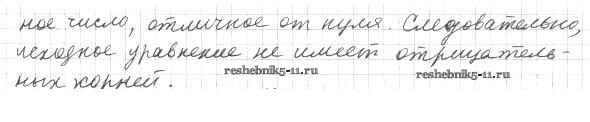 ное число, отличное от нуля. Следовательно,
исходное уравнение не имеет отрицатель-
reshebnik5-11.ru reshebnik5-11.ru
ных корней.